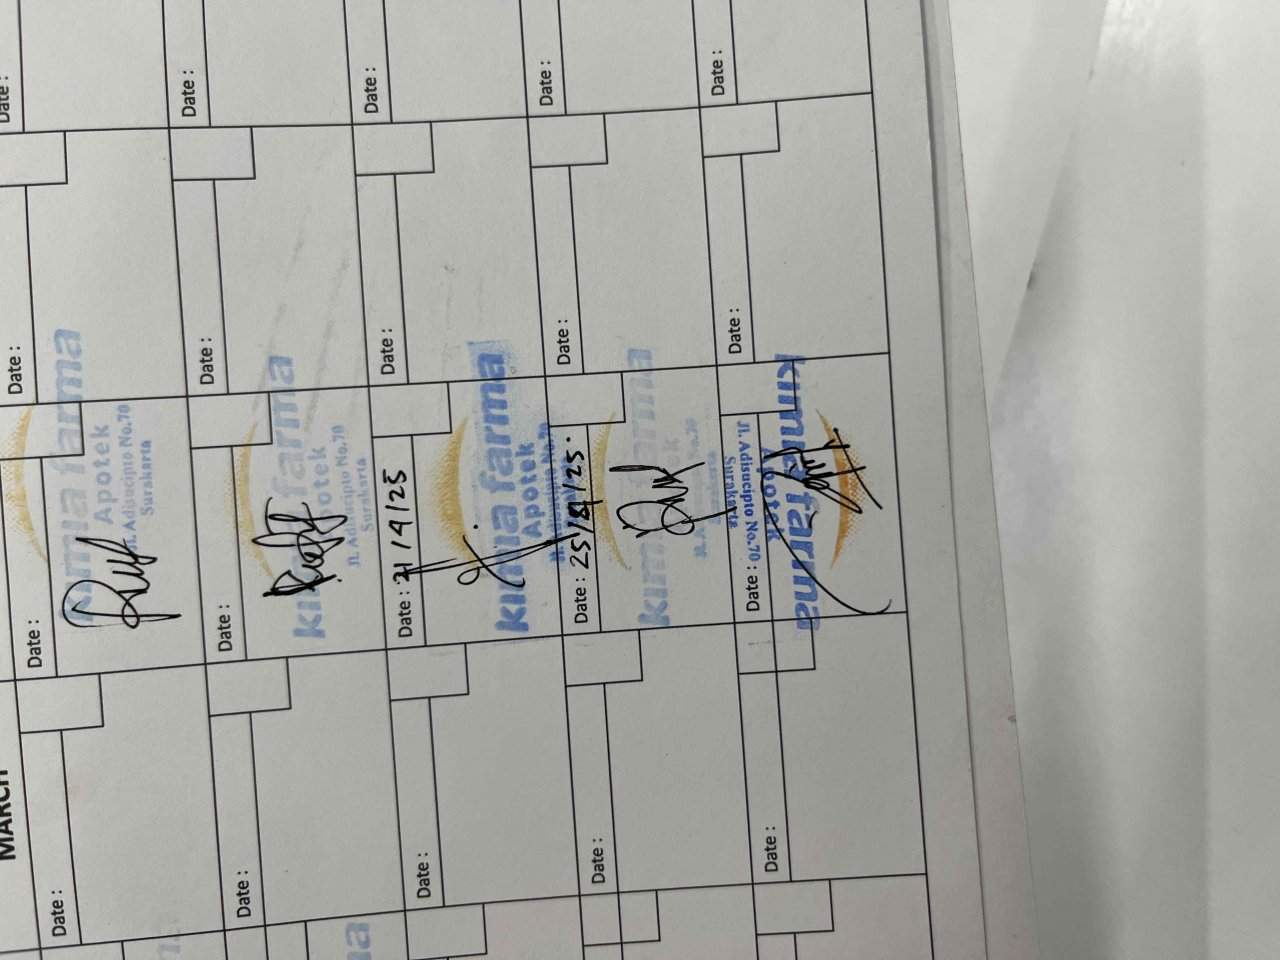 MARCH
Date :
Date :
Date :
Date :
Date :
Date :
kimia farma
Apotek
Jl. Adisucipto No.70
Surakarta
Date :
Date :
Date :
kimia farma
Apotek
Jl. Adisucipto No.70
Surakarta
Date :
Date :
Date :
Date : 21/4/25
kimia farma
Apotek
Date :
Date :
Date :
Date : 25/4/25.
kimia farma
Date :
Date :
Date :
Date :
kimia farma
Apotek
Jl. Adisucipto No.70
Surakarta
Date :